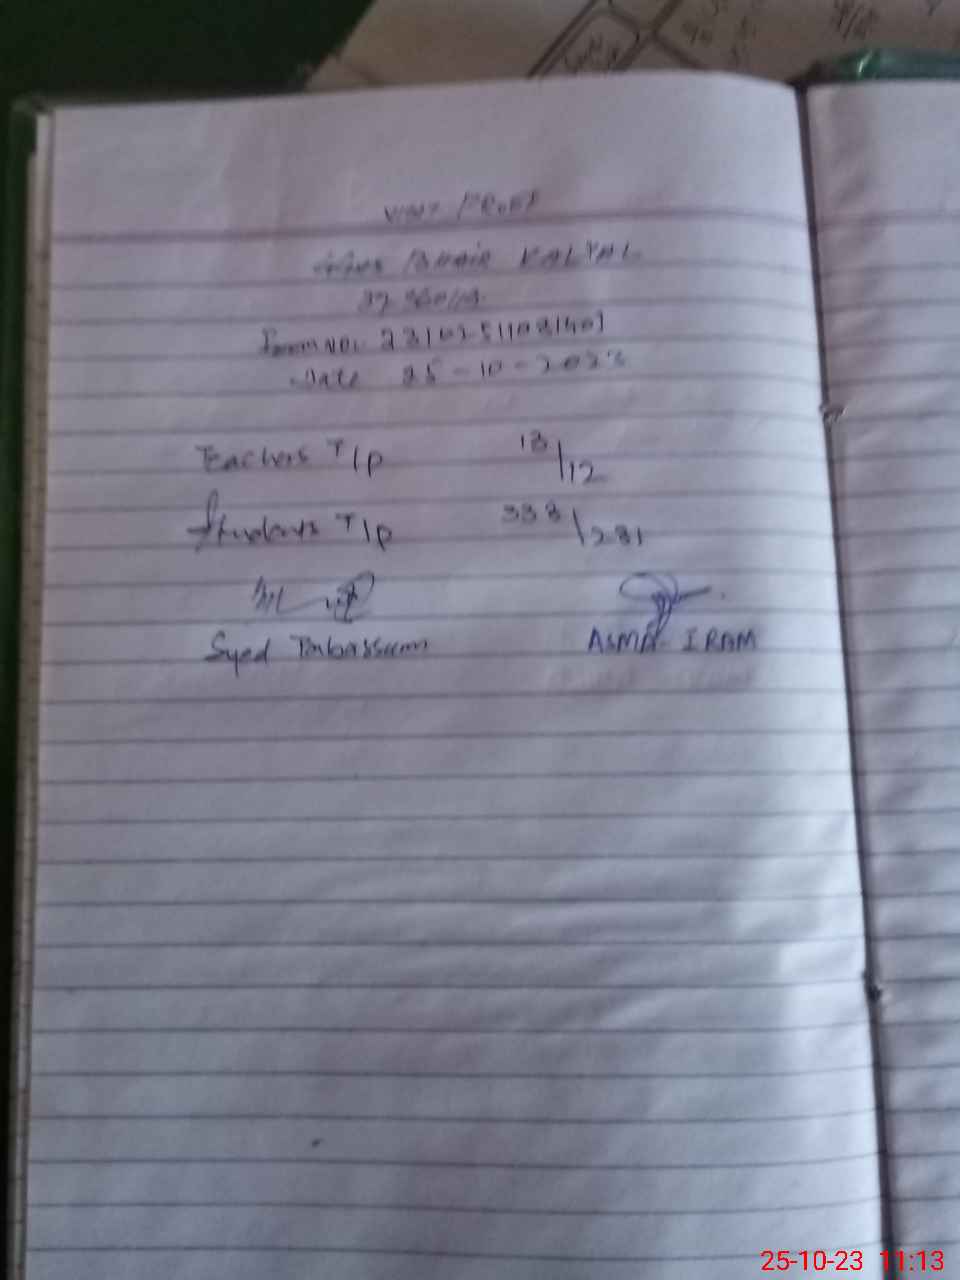 VISIT PROOF
BHAIR KALYAL
Form No. 23102511081401
Date 25-10-2023
Teachers T/P 13/12
Students T/P 333/281
Syed Tabassum ASMA IRAM
25-10-23 11:13